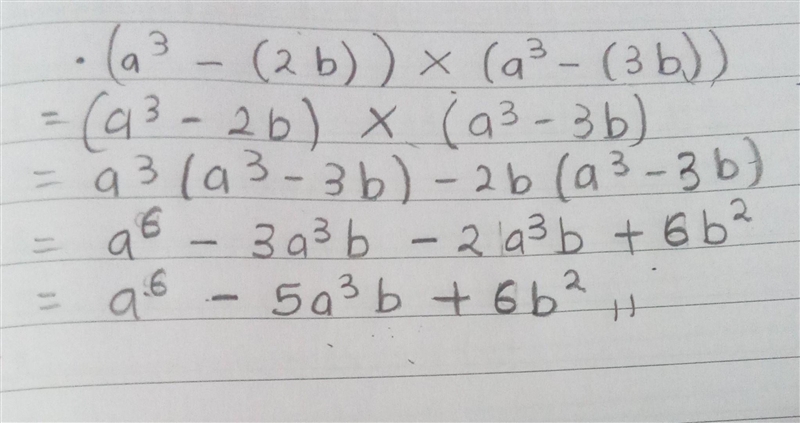 · (a³ - (2b)) × (a³ - (3b))
= (a³ - 2b) × (a³ - 3b)
= a³ (a³ - 3b) - 2b (a³ - 3b)
= a⁶ - 3a³b - 2a³b + 6b²
= a⁶ - 5a³b + 6b² //